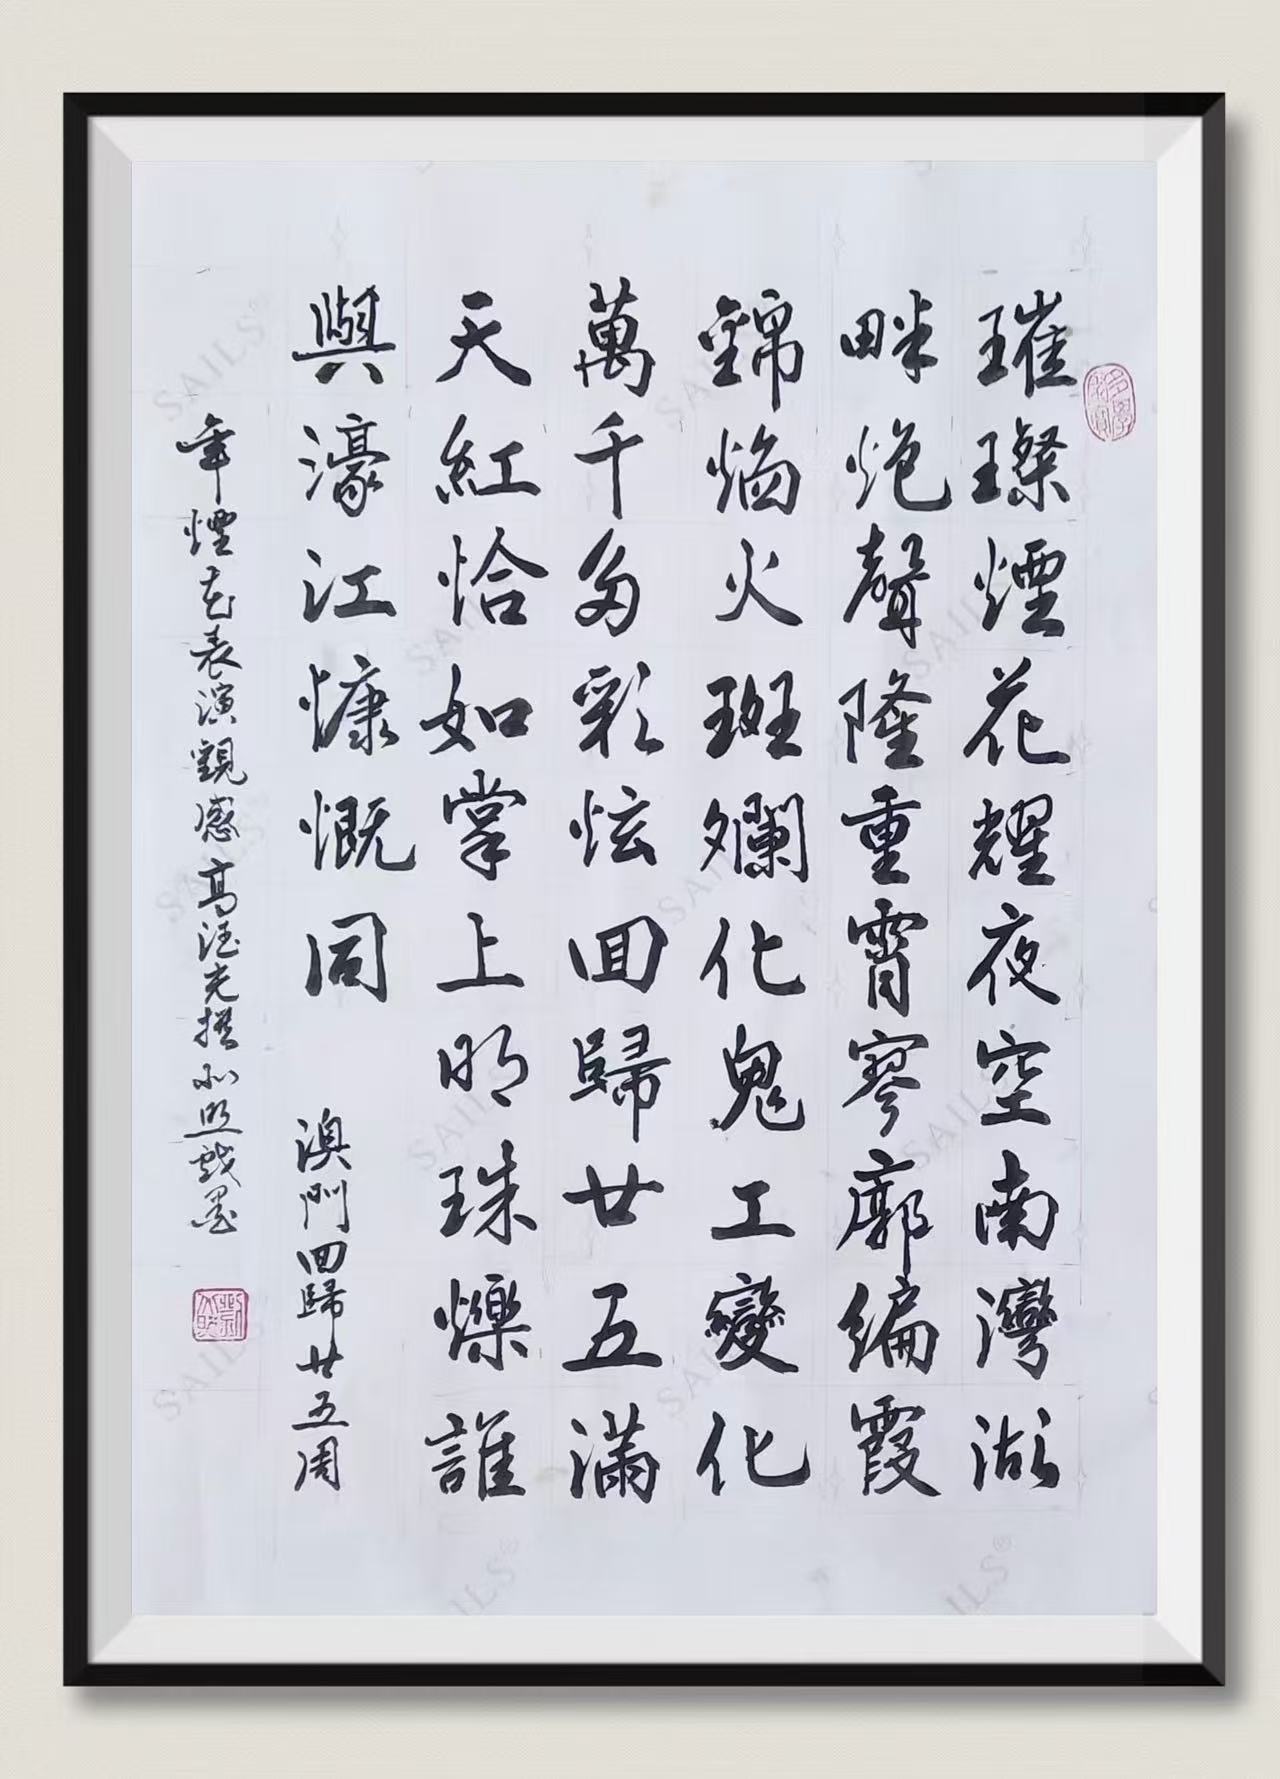 璀璨煙花耀夜空南灣湖
畔炮聲隆重霄寥廓編霞
錦焰火斑斕化鬼工變化
萬千多彩炫回歸廿五滿
天紅恰如掌上明珠爍誰
與濠江慷慨同
澳門回歸廿五周
年煙花表演觀感高潤光撰 照戲墨
SAILS